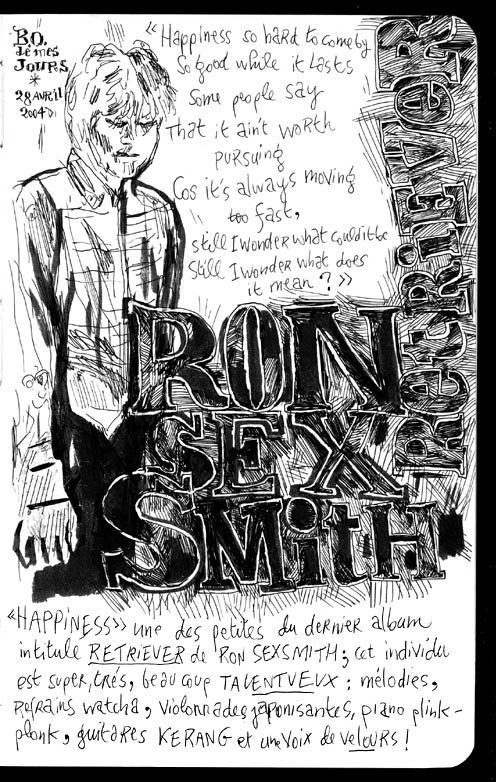 B.O.
de mes
JOURS
*
28 AVRIL
2004
« Happiness so hard to come by
So good while it lasts
Some people say
That it ain't worth
pursuing
Cos it's always moving
too fast,
still I wonder what could it be
Still I wonder what does
it mean ? »
RETRIEVER
RON
SEX
SMITH
«HAPPINESS» une des petites du dernier album
intitulé RETRIEVER de RON SEXSMITH ; cet individu
est super, très, beaucoup TALENTUEUX : mélodies,
refrains watcha, violonnades japonisantes, piano plink-
plonk, guitares KERANG et une voix de velours !